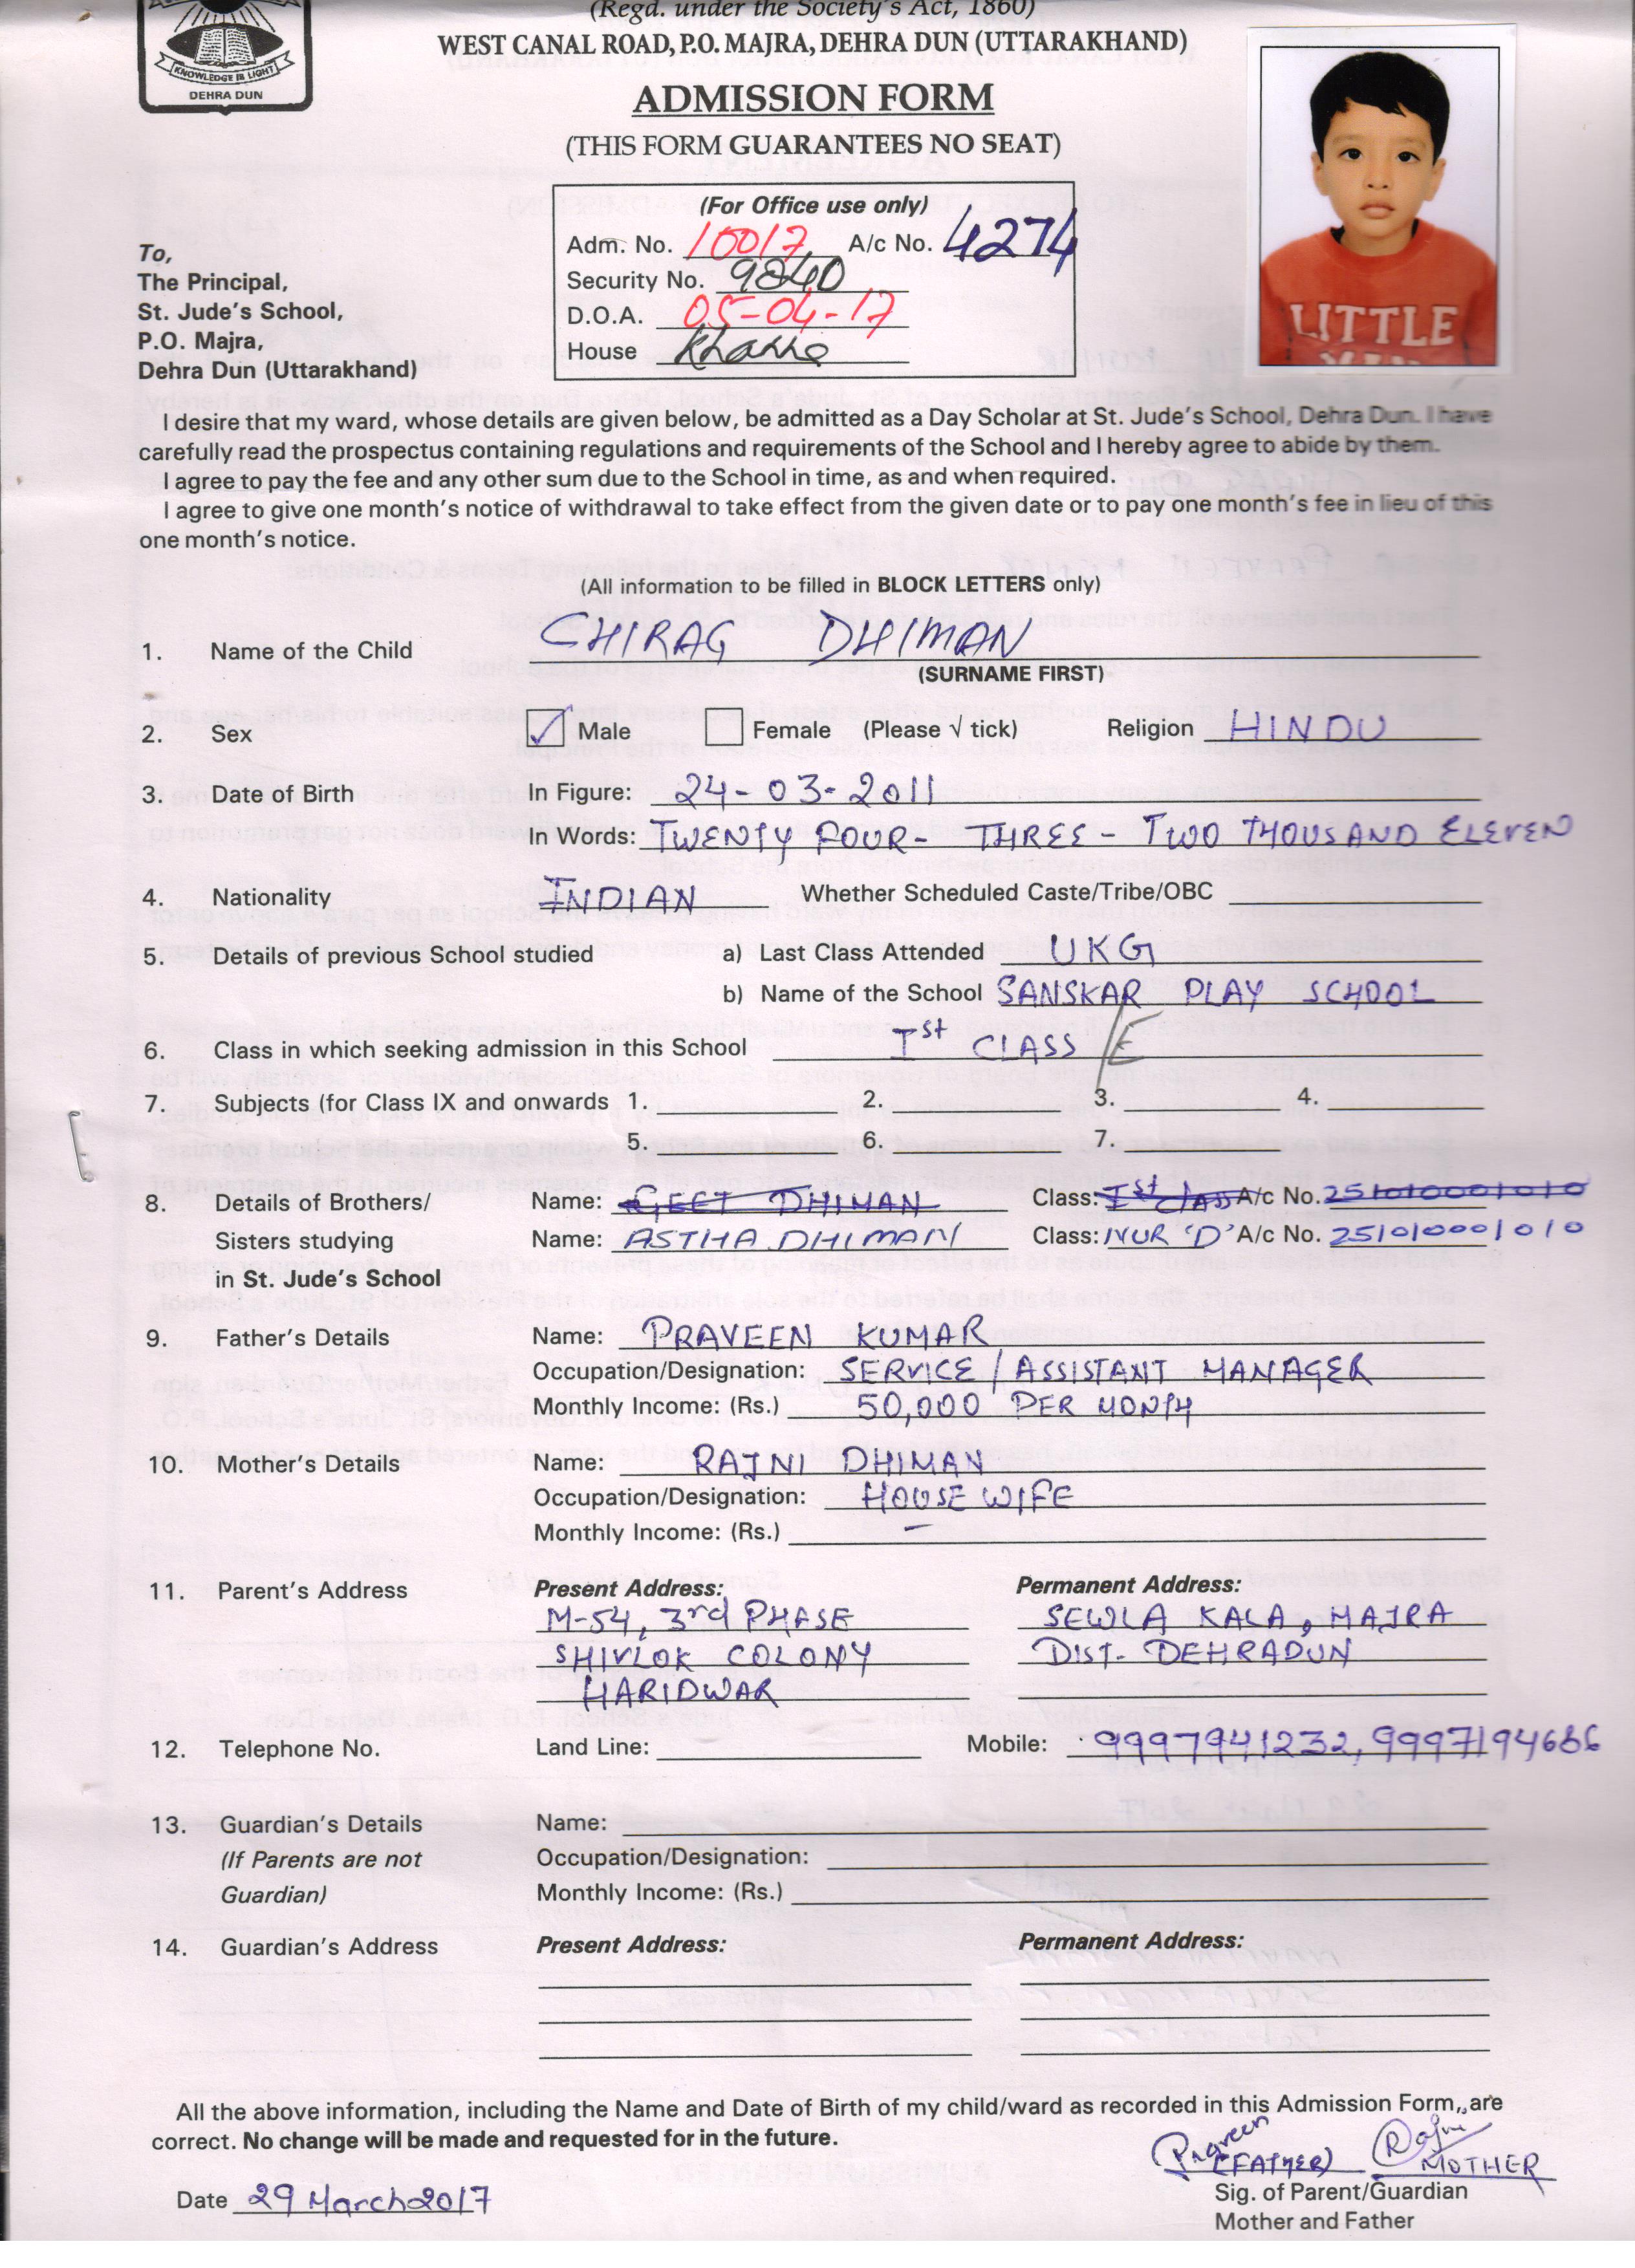 (Regd. under the Society's Act, 1860)
WEST CANAL ROAD, P.O. MAJRA, DEHRA DUN (UTTARAKHAND)
KNOWLEDGE IS LIGHT
DEHRA DUN
ADMISSION FORM
(THIS FORM GUARANTEES NO SEAT)
(For Office use only)
Adm. No. 10017 A/c No. 4274
Security No. 9840
D.O.A. 05-04-17
House
To,
The Principal,
St. Jude's School,
P.O. Majra,
Dehra Dun (Uttarakhand)
LITTLE
I desire that my ward, whose details are given below, be admitted as a Day Scholar at St. Jude's School, Dehra Dun. I have
carefully read the prospectus containing regulations and requirements of the School and I hereby agree to abide by them.
I agree to pay the fee and any other sum due to the School in time, as and when required.
I agree to give one month's notice of withdrawal to take effect from the given date or to pay one month's fee in lieu of this
one month's notice.
(All information to be filled in BLOCK LETTERS only)
1. Name of the Child CHIRAG DHIMAN
(SURNAME FIRST)
2. Sex Male Female (Please √ tick) Religion HINDU
3. Date of Birth In Figure: 24-03-2011
In Words: TWENTY FOUR- THREE - TWO THOUSAND ELEVEN
4. Nationality INDIAN Whether Scheduled Caste/Tribe/OBC
5. Details of previous School studied a) Last Class Attended UKG
b) Name of the School SANSKAR PLAY SCHOOL
6. Class in which seeking admission in this School Ist CLASS /E
7. Subjects (for Class IX and onwards 1. 2. 3. 4.
5. 6. 7.
8. Details of Brothers/ Name: GEET DHIMAN Class: Ist Class A/c No. 251010001010
Sisters studying Name: ASTHA DHIMAN Class: NUR 'D' A/c No. 251010001010
in St. Jude's School
9. Father's Details Name: PRAVEEN KUMAR
Occupation/Designation: SERVICE / ASSISTANT MANAGER
Monthly Income: (Rs.) 50,000 PER MONTH
10. Mother's Details Name: RAJNI DHIMAN
Occupation/Designation: HOUSE WIFE
Monthly Income: (Rs.) -
11. Parent's Address Present Address: Permanent Address:
M-54, 3rd PHASE SEWLA KALA, MAJRA
SHIVLOK COLONY DIST- DEHRADUN
HARIDWAR
12. Telephone No. Land Line: Mobile: 9997941232, 9997194666
13. Guardian's Details Name:
(If Parents are not Occupation/Designation:
Guardian) Monthly Income: (Rs.)
14. Guardian's Address Present Address: Permanent Address:
All the above information, including the Name and Date of Birth of my child/ward as recorded in this Admission Form, are
correct. No change will be made and requested for in the future.
Praveen Rajni
(FATHER) MOTHER
Date 29 March 2017
Sig. of Parent/Guardian
Mother and Father